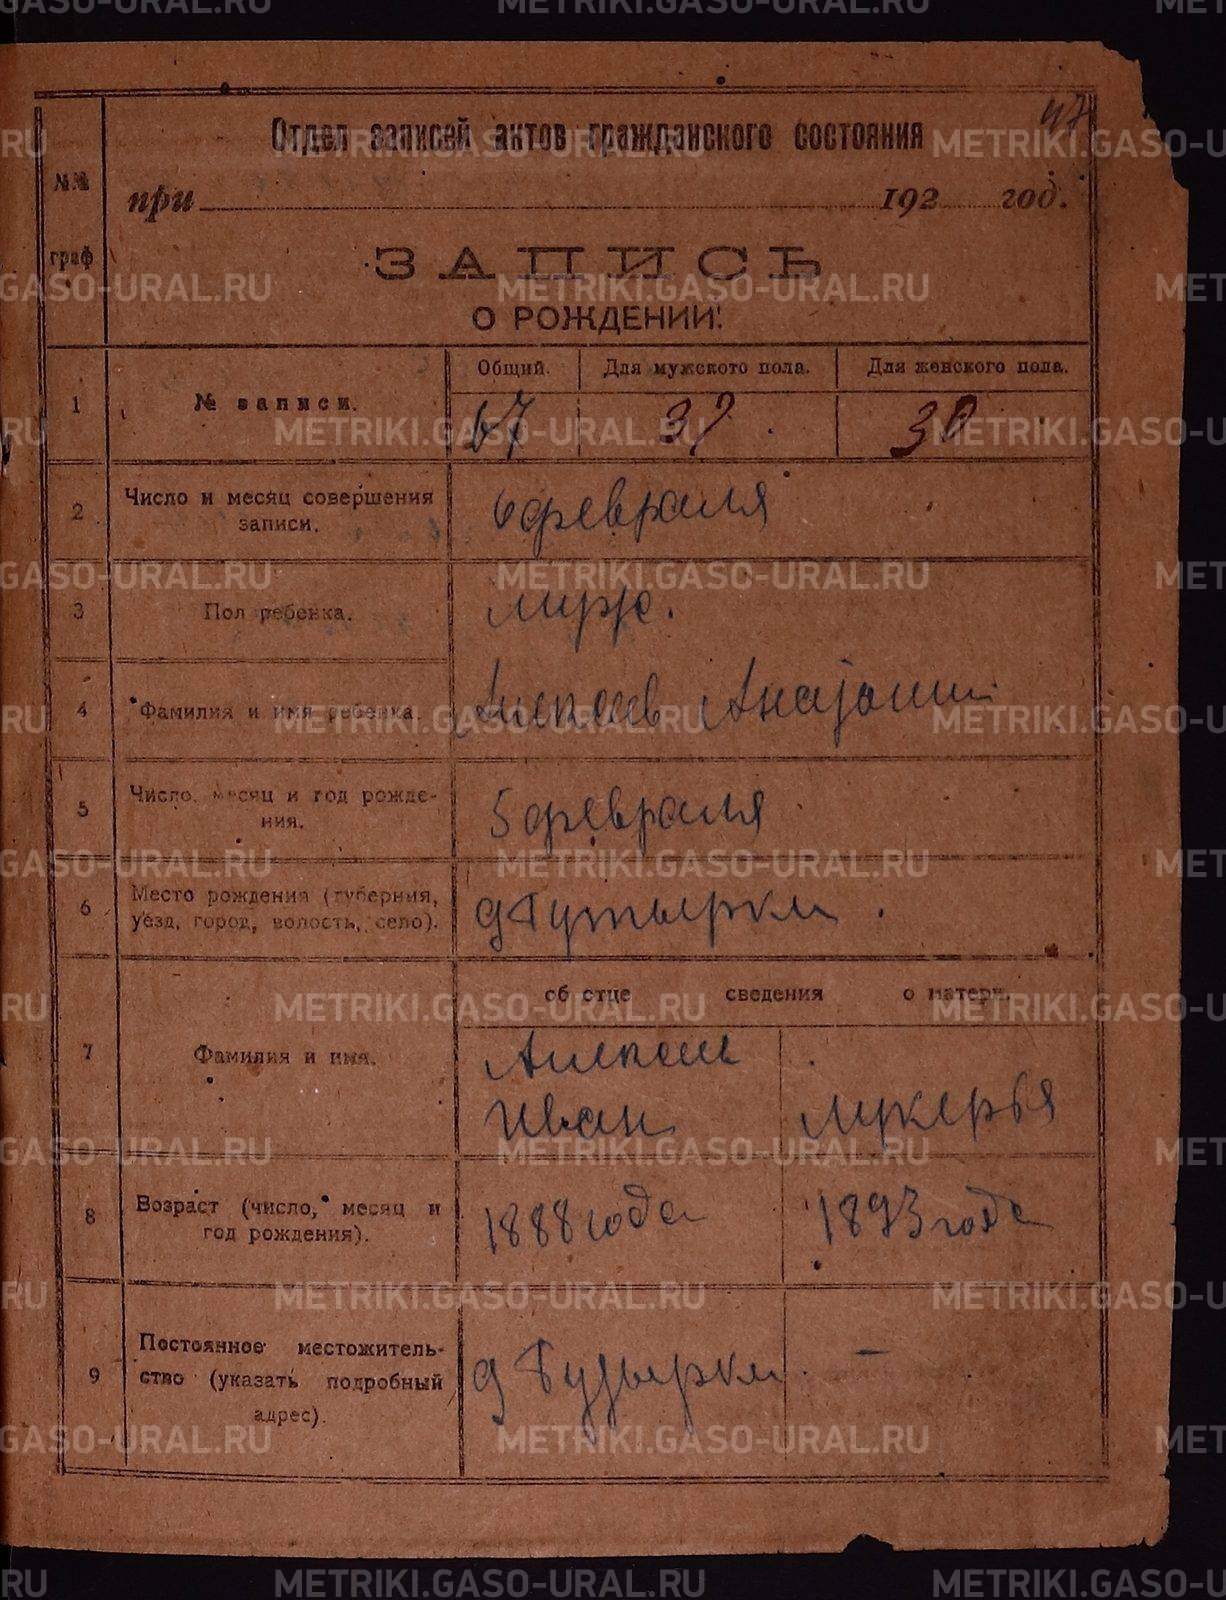 47
Отдел записей актов гражданского состояния
№№ граф
при 192 год.
ЗАПИСЬ
О РОЖДЕНИИ:
Общий. Для мужского пола. Для женского пола.
1 № записи. 67 37 30
2 Число и месяц совершения записи. 6 февраля
3 Пол ребенка. муж.
4 Фамилия и имя ребенка. Алексеев
5 Число, месяц и год рождения. 5 февраля
6 Место рождения (губерния, уезд, город, волость, село). д Бутырки
об отце сведения о матери.
7 Фамилия и имя. Алексеев
Иван Лукерья
8 Возраст (число, месяц и год рождения). 1888 года 1893 года
9 Постоянное местожительство (указать подробный адрес). д Будырки —
METRIKI.GASO-URAL.RU